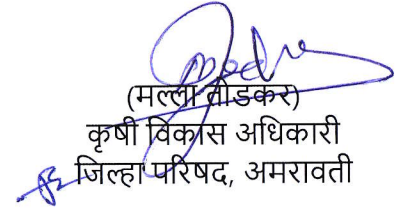 (मल्ला तोडकर)
कृषी विकास अधिकारी
जिल्हा परिषद, अमरावती